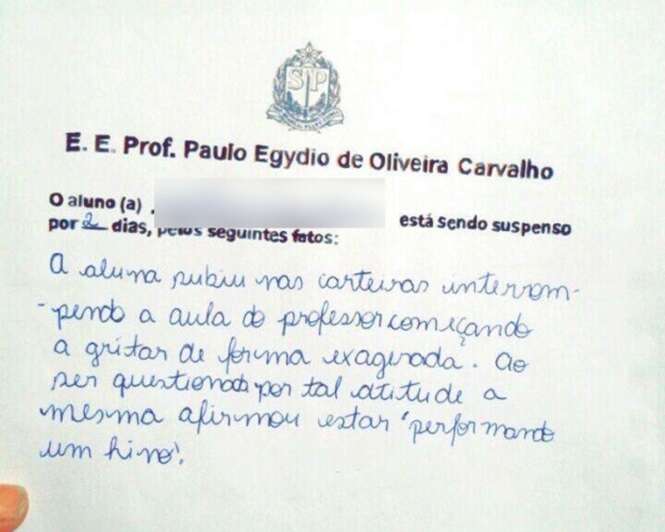 SP
E. E. Prof. Paulo Egydio de Oliveira Carvalho
O aluno (a) está sendo suspenso
por 2 dias, pelos seguintes fatos:
A aluna subiu nas carteiras interrom-
-pendo a aula do professor começando
a gritar de forma exagerada. Ao
ser questionada por tal atitude a
mesma afirmou estar 'performando
um hino'.